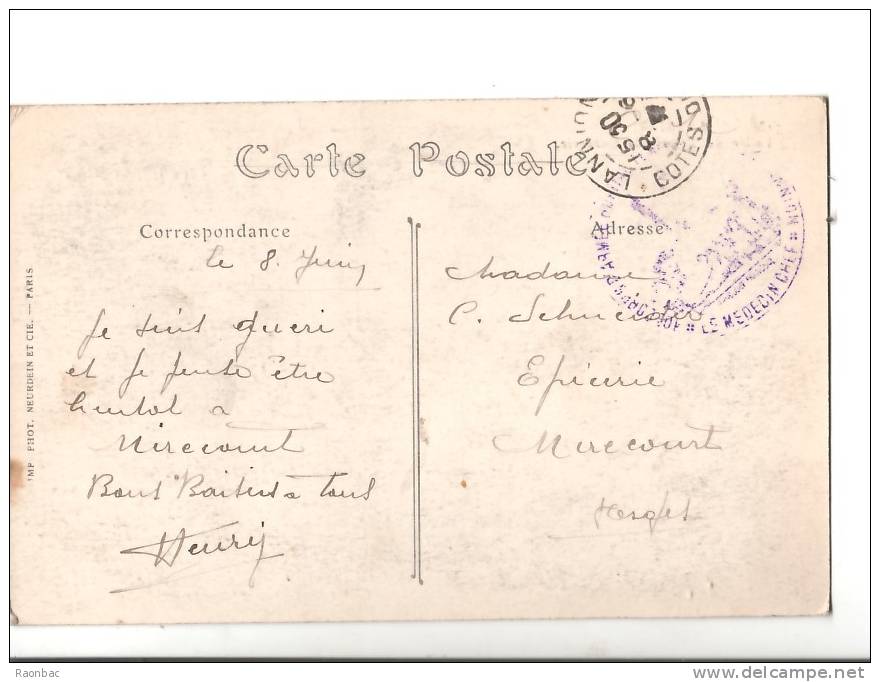 Carte Postale
Correspondance
Adresse
le 8 Juin
Je suis gueri
et Je pense être
bientot a
Mirecourt
Bons Baisers a tous
Henry
Madame
C.
Epicerie
Mirecourt
Vosges
LANNION
COTES
15 30
8
LE MEDECIN CHEF
IMP. PHOT. NEURDEIN ET CIE. — PARIS
Raonbac
www.delcampe.net